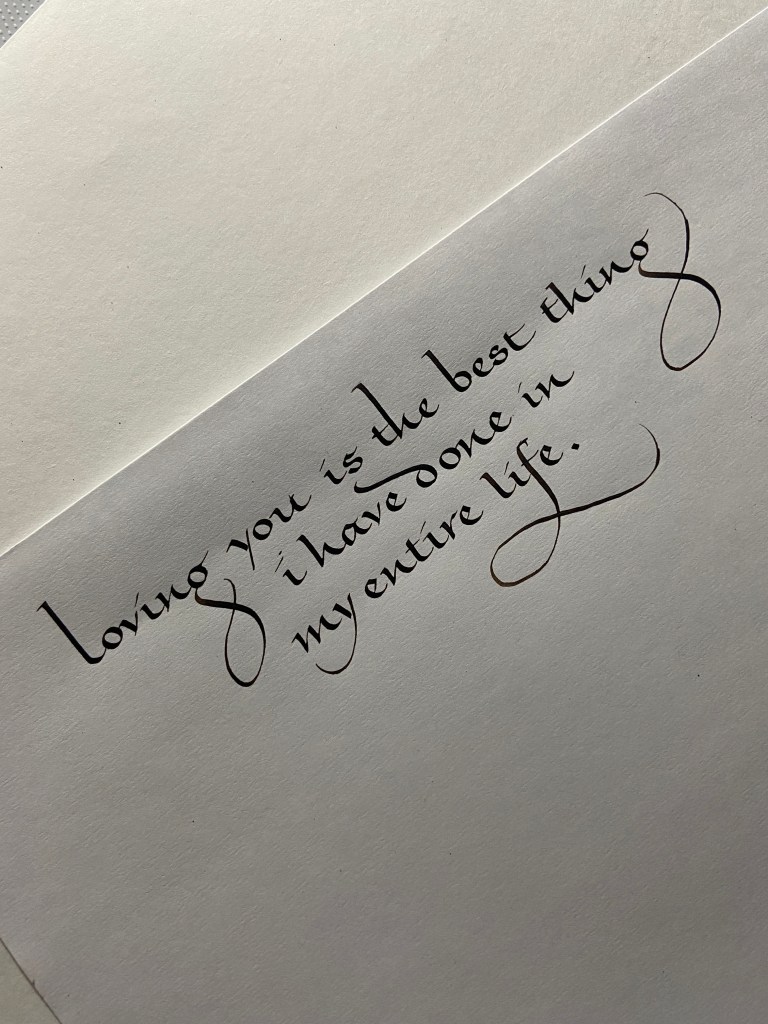 loving you is the best thing
i have done in
my entire life.